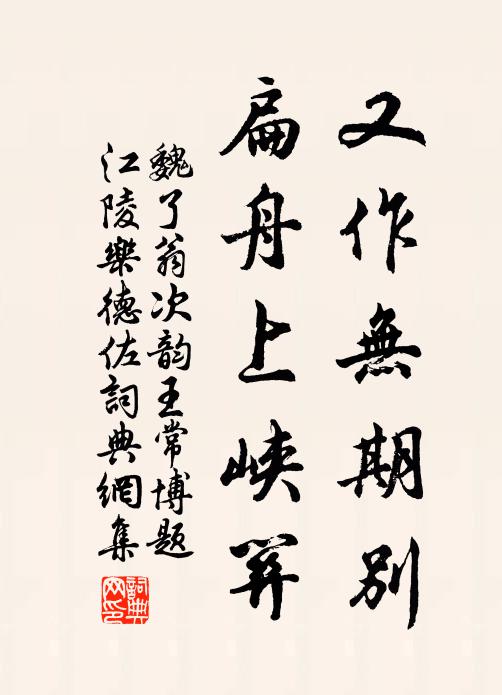 又作無期別
扁舟上峽
魏了翁次韵王常博題
江陵樂德佐詞典網集
詞典网印